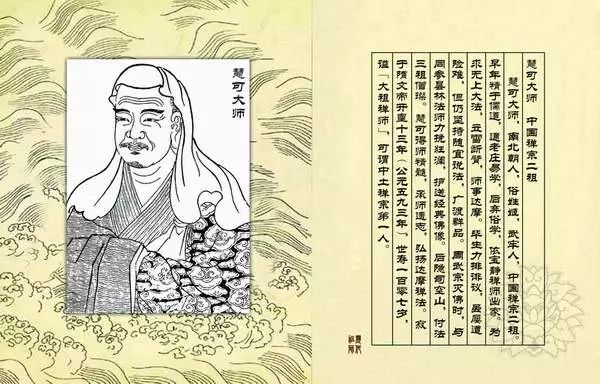 慧可大师
慧可大师 中国禅宗二祖
慧可大师，南北朝人，俗姓姬，武牢人，中国禅宗二祖。
早年精于儒道，通老庄易学，后弃俗学，依宝静禅师出家。为
求无上大法，立雪断臂，师事达摩。毕生力排诽议，虽屡遭
险难，但仍坚持随宜说法，广渡群品。周武宗灭佛时，与
同参昙林法师力挽狂澜，护送经典佛像。后隐司空山，付法
三祖僧璨。慧可得师精髓，承师遗志，弘扬达摩禅法。寂
于隋文帝开皇十三年（公元五九三年）世寿一百零七岁，
谥「大祖禅师」，可谓中土禅宗第一人。